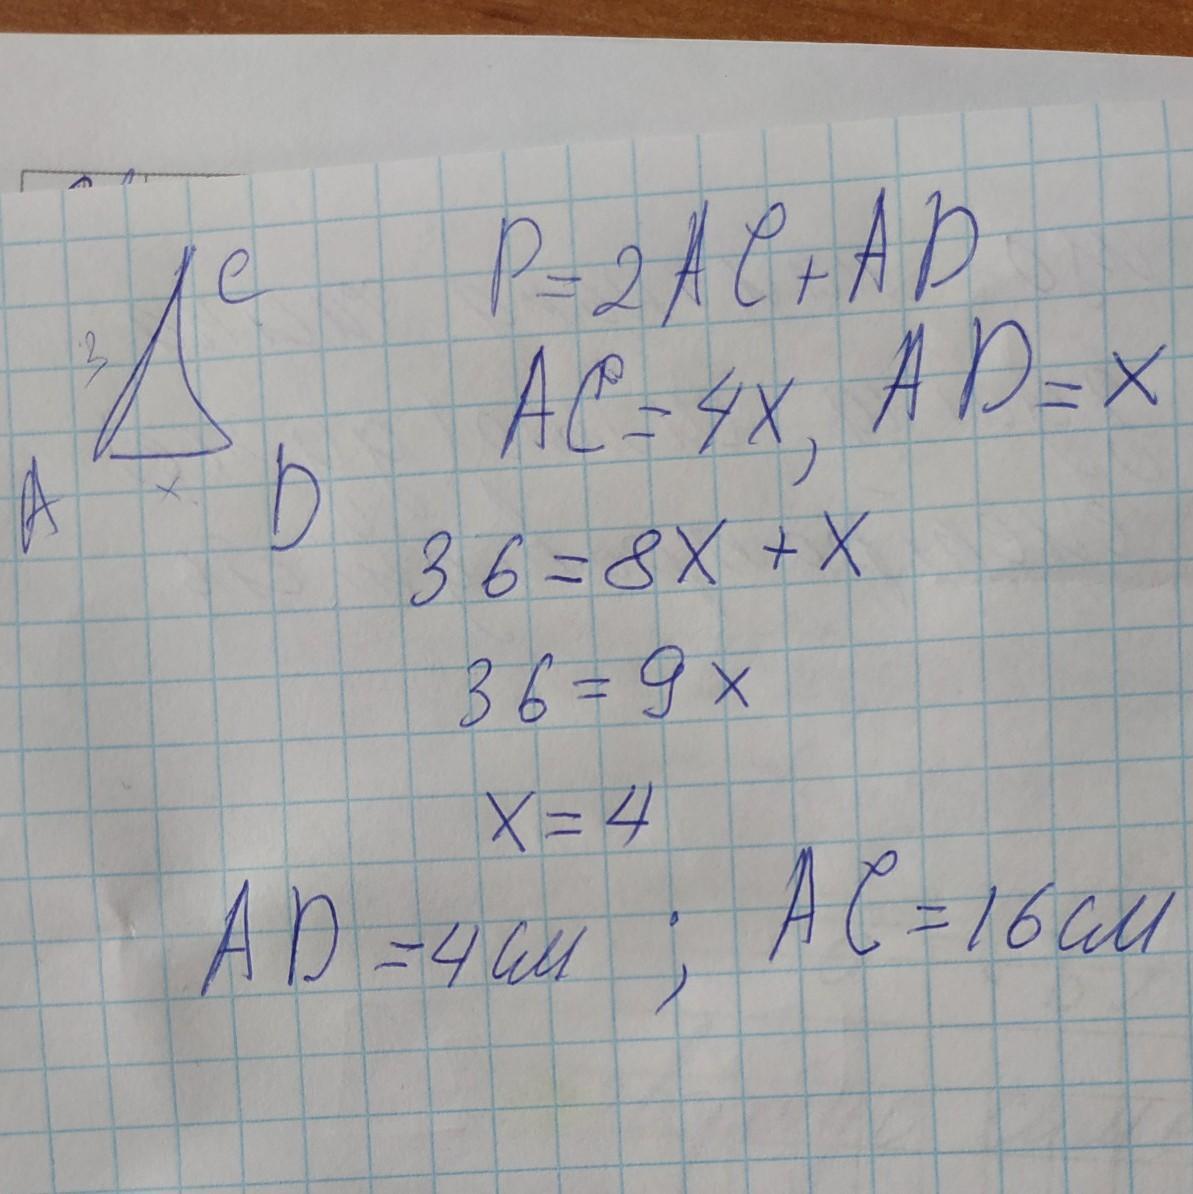 C
P=2AC+AD
3
AC=4x, AD=x
A x D
36=8x+x
36=9x
x=4
AD=4см ; AC=16см